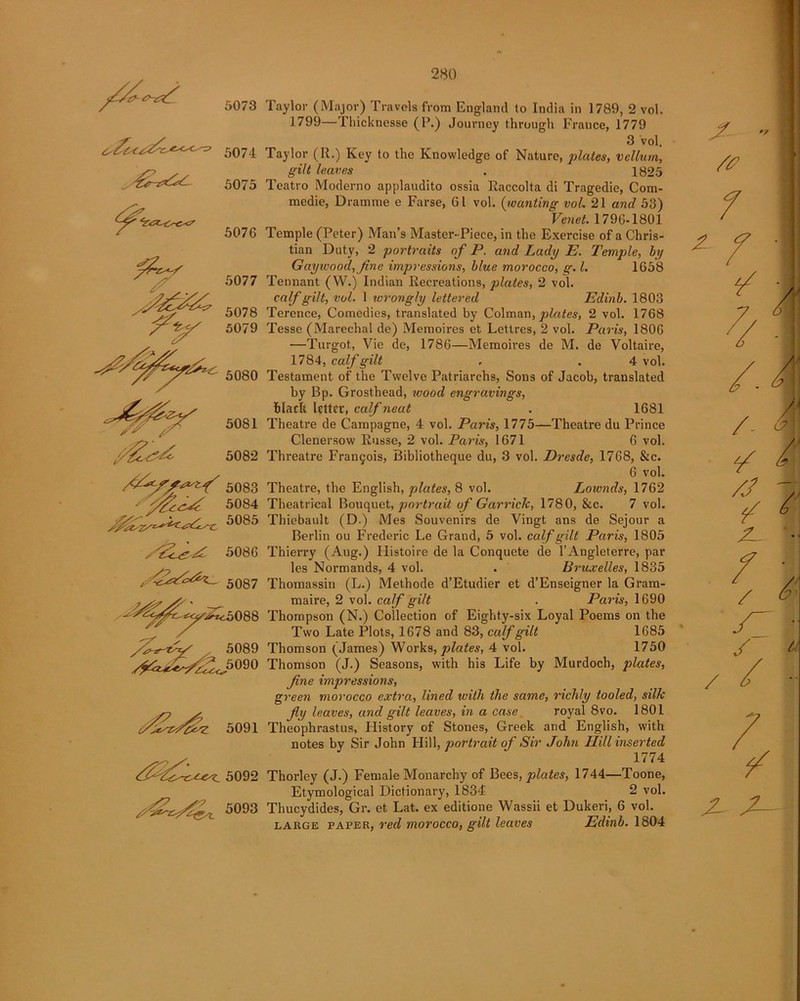 280
5073 Taylor (Major) Travels from England to India in 1789, 2 vol.
1799—Thicknesse (P.) Journey through France, 1779
3 vol.
5074 Taylor (R.) Key to the Knowledge of Nature, plates, vellum,
gilt leaves . 1825
5075 Teatro Moderno applaudito ossia Raccolta di Tragedie, Com-
medie, Dramme e Farse, 61 vol. (wanting vol. 21 and 53)
Venet. 1796-1801
5076 Temple (Peter) Man's Master-Piece, in the Exercise of a Chris-
tian Duty, 2 portraits of P. and Lady E. Temple, by
Gaywood, fine impressions, blue morocco, g. l. 1658
5077 Tennant (W.) Indian Recreations, plates, 2 vol.
calf gilt, vol. 1 wrongly lettered Edinb. 1803
5078 Terence, Comedies, translated by Colman, plates, 2 vol. 1768
5079 Tesse (Marechal de) Memoires et Lettres, 2 vol. Paris, 1806
—Turgot, Vie de, 1786—Memoires de M. de Voltaire,
1784, calf gilt . . 4 vol.
5080 Testament of the Twelve Patriarchs, Sons of Jacob, translated
by Bp. Grosthead, wood engravings,
black letter, calf neat . 1681
5081 Theatre de Campagne, 4 vol. Paris, 1775—Theatre du Prince
Clenersow Russe, 2 vol. Paris, 1671 6 vol.
5082 Threatre François, Bibliotheque du, 3 vol. Dresde, 1768, &c.
6 vol.
5083 Theatre, the English, plates, 8 vol. Lownds, 1762
5084 Theatrical Bouquet, portrait of Garrick, 1780, &c. 7 vol.
5085 Thiebault (D.) Mes Souvenirs de Vingt ans de Sejour a
Berlin ou Frederic Le Grand, 5 vol. calf gilt Paris, 1805
5086 Thierry (Aug.) Histoire de la Conquete de l'Angleterre, par
les Normands, 4 vol. . Bruxelles, 1835
5087 Thomassin (L.) Methode d'Etudier et d'Enseigner la Gram-
maire, 2 vol. calf gilt . Paris, 1690
5088 Thompson (N.) Collection of Eighty-six Loyal Poems on the
Two Late Plots, 1678 and 83, calf gilt 1685
5089 Thomson (James) Works, plates, 4 vol. 1750
5090 Thomson (J.) Seasons, with his Life by Murdoch, plates,
fine impressions,
green morocco extra, lined with the same, richly tooled, silk
fly leaves, and gilt leaves, in a case royal 8vo. 1801
5091 Theophrastus, History of Stones, Greek and English, with
notes by Sir John Hill, portrait of Sir John Hill inserted
1774
5092 Thorley (J.) Female Monarchy of Bees, plates, 1744—Toone,
Etymological Dictionary, 1834 2 vol.
5093 Thucydides, Gr. et Lat. ex editione Wassii et Dukeri, 6 vol.
LARGE PAPER, red morocco, gilt leaves Edinb. 1804